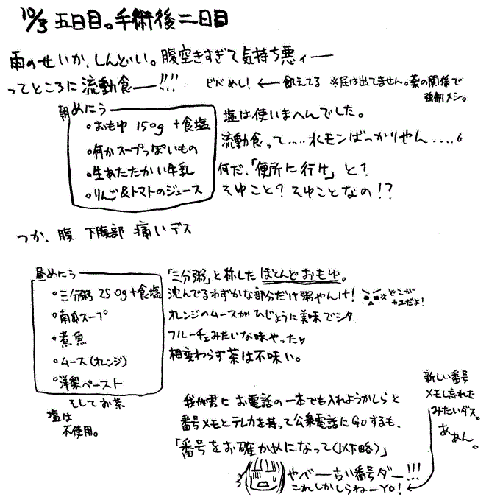 10/3 五日目。手術後二日目
雨のせいか、しんどい。腹空きすぎて気持ち悪ィー
ってところに流動食ー!!!
ビバめし! ← 飢えてる
朝めにう
・おもゆ 150g +食塩
・何かスープっぽいもの
・生あたたかい牛乳
・りんご&トマトのジュース
塩は使いまへんでした。
流動食って....水モンばっかりやん....。
何だ、「便所に行け」と?
そゆこと?そゆことなの!?
つか、腹 下腹部 痛いデス
昼めにう
・三分粥 250g+食塩
・南瓜スープ
・煮魚
・ムース(オレンジ)
・洋梨ペースト
そしてお茶
塩は
不使用。
「三分粥」と称したほとんどおもゆ。
沈んでるわずかな部分だけ粥やんけ!
オレンジのムースがひじょうに美味でシタ
フルーチェみたいな味やったヨ
相変わらず茶は不味い。
お電話の一本でも入れようかしらと
番号メモとテレカを持って公衆電話にGOするも、
「番号をお確かめになって(以下略)」
やべー古い番号ダー!!!
これしかしらねーYO!
新しい番号
メモし忘れた
みたいダス。
ああん。